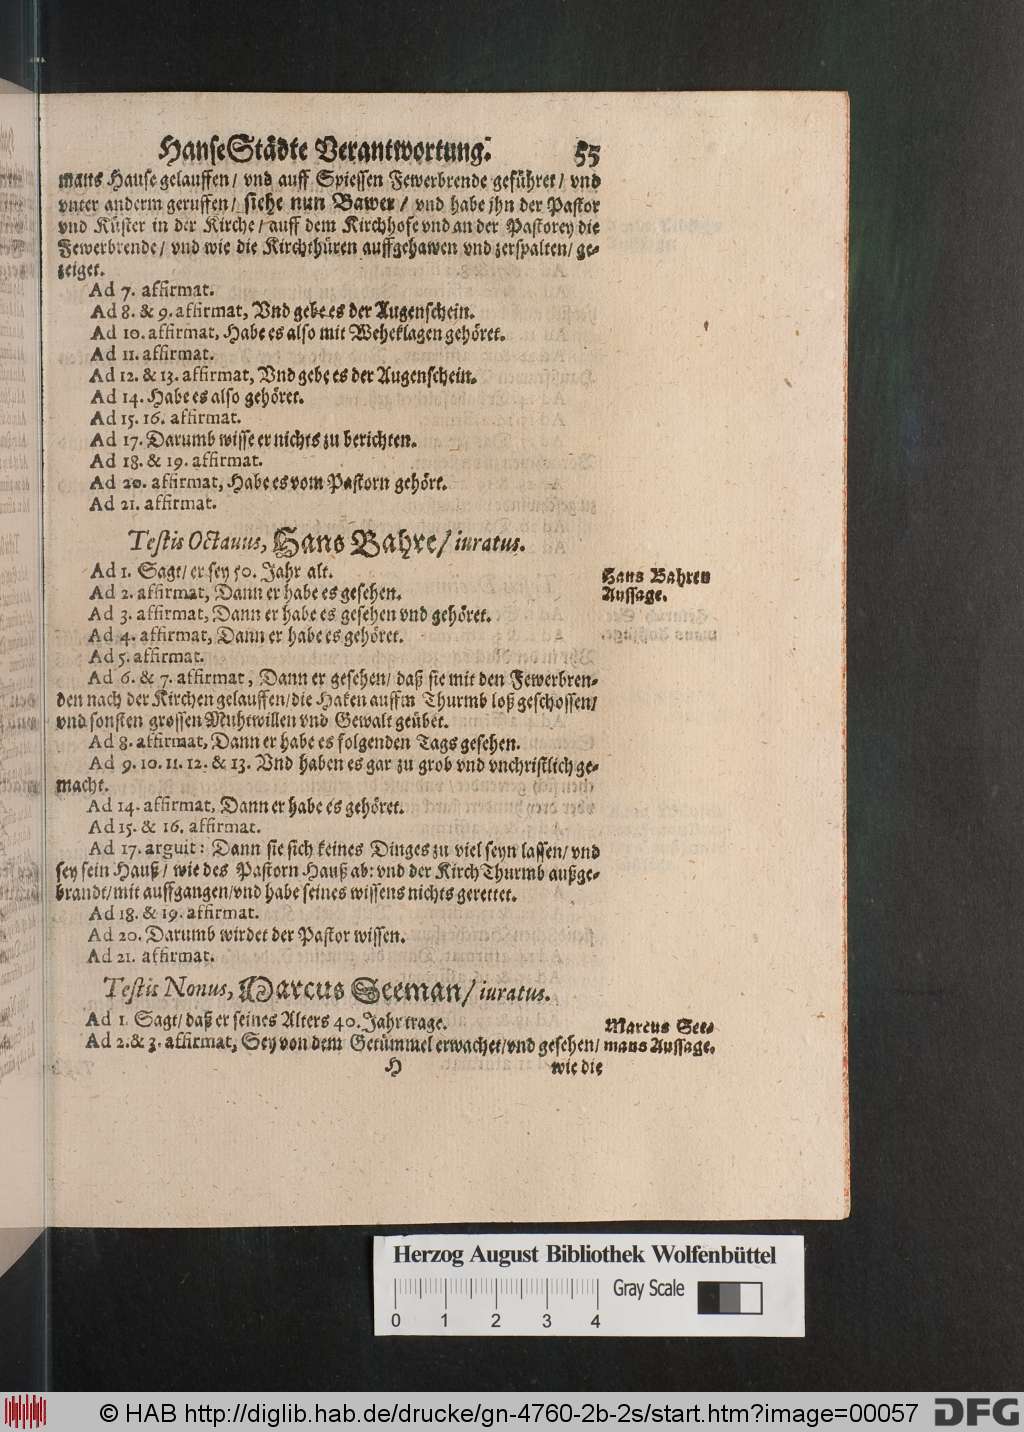 HanseStädte Verantwortung. 55
mans Hause gelauffen/ vnd auff Spiessen Fewerbrende geführet/ vnd
vnter anderm geruffen/ siehe nun Bawer/ vnd habe jhn der Pastor
vnd Küster in der Kirche/ auff dem Kirchhofe vnd an der Pastorey die
Fewerbrende/ vnd wie die Kirchthüren auffgehawen vnd zerspalten/ ge-
zeiget.
Ad 7. affirmat.
Ad 8. & 9. affirmat, Vnd gebe es der Augenschein.
Ad 10. affirmat, Habe es also mit Weheklagen gehöret.
Ad 11. affirmat.
Ad 12. & 13. affirmat, Vnd gebe es der Augenschein.
Ad 14. Habe es also gehöret.
Ad 15. 16. affirmat.
Ad 17. Darumb wisse er nichts zu berichten.
Ad 18. & 19. affirmat.
Ad 20. affirmat, Habe es vom Pastorn gehört.
Ad 21. affirmat.
Testis Octauus, Hans Bahre/ iuratus.
Ad 1. Sagt/ er sey 50. Jahr alt.
Hans Bahren
Ad 2. affirmat, Dann er habe es gesehen.
Aussage.
Ad 3. affirmat, Dann er habe es gesehen vnd gehöret.
Ad 4. affirmat, Dann er habe es gehöret.
Ad 5. affirmat.
Ad 6. & 7. affirmat, Dann er gesehen/ daß sie mit den Fewerbren-
den nach der Kirchen gelauffen/ die Haken auffm Thurmb loß geschossen/
vnd sonsten grossen Muhtwillen vnd Gewalt geübet.
Ad 8. affirmat, Dann er habe es folgenden Tags gesehen.
Ad 9. 10. 11. 12. & 13. Vnd haben es gar zu grob vnd vnchristlich ge-
macht.
Ad 14. affirmat, Dann er habe es gehöret.
Ad 15. & 16. affirmat.
Ad 17. arguit: Dann sie sich keines Dinges zu viel seyn lassen/ vnd
sey sein Hauß/ wie des Pastorn Hauß ab: vnd der KirchThurmb außge-
brandt/ mit auffgangen/ vnd habe seines wissens nichts gerettet.
Ad 18. & 19. affirmat.
Ad 20. Darumb wirdet der Pastor wissen.
Ad 21. affirmat.
Testis Nonus, Marcus Seeman/ iuratus.
Ad 1. Sagt/ daß er seines Alters 40. Jahr trage.
Marcus See-
Ad 2. & 3. affirmat, Sey von dem Getümmel erwachet/ vnd gesehen/
mans Aussage.
H wie die
Herzog August Bibliothek Wolfenbüttel
Gray Scale
0 1 2 3 4
© HAB http://diglib.hab.de/drucke/gn-4760-2b-2s/start.htm?image=00057
DFG